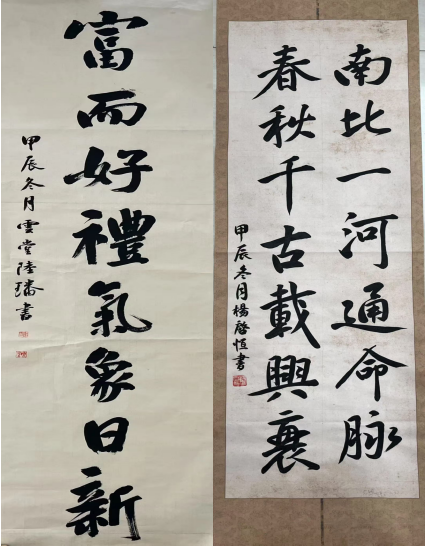 富而好禮氣象日新
甲辰冬月雲堂陸璠書
南北一河通命脉
春秋千古載興衰
甲辰冬月楊啓恒書